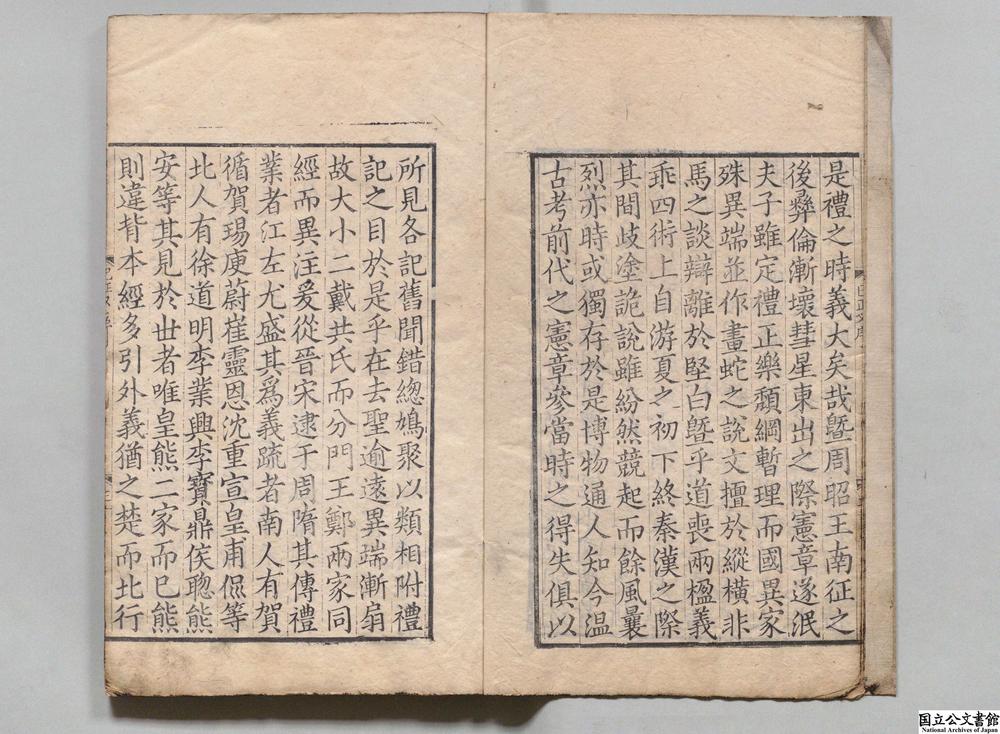 是禮之時義大矣哉曁周昭王南征之
後彝倫漸壞彗星東出之際憲章遂泯
夫子雖定禮正樂頽綱暫理而國異家
殊異端並作畫蛇之説文擅於縱橫非
馬之談辯離於堅白曁乎道喪兩楹義
乖四術上自游夏之初下終秦漢之際
其間歧塗詭説雖紛然競起而餘風曩
烈亦時或獨存於是博物通人知今温
古考前代之憲章參當時之得失俱以
所見各記舊聞錯緫鳩聚以類相附禮
記之目於是乎在去聖逾遠異端漸扇
故大小二戴共氏而分門王鄭兩家同
經而異注爰從晉宋逮于周隋其傳禮
業者江左尤盛其爲義疏者南人有賀
循賀瑒庾蔚崔靈恩沈重宣皇甫侃等
北人有徐道明李業興李寶鼎侯聦熊
安等其見於世者唯皇熊二家而已熊
則違背本經多引外義猶之楚而北行
国立公文書館
National Archives of Japan